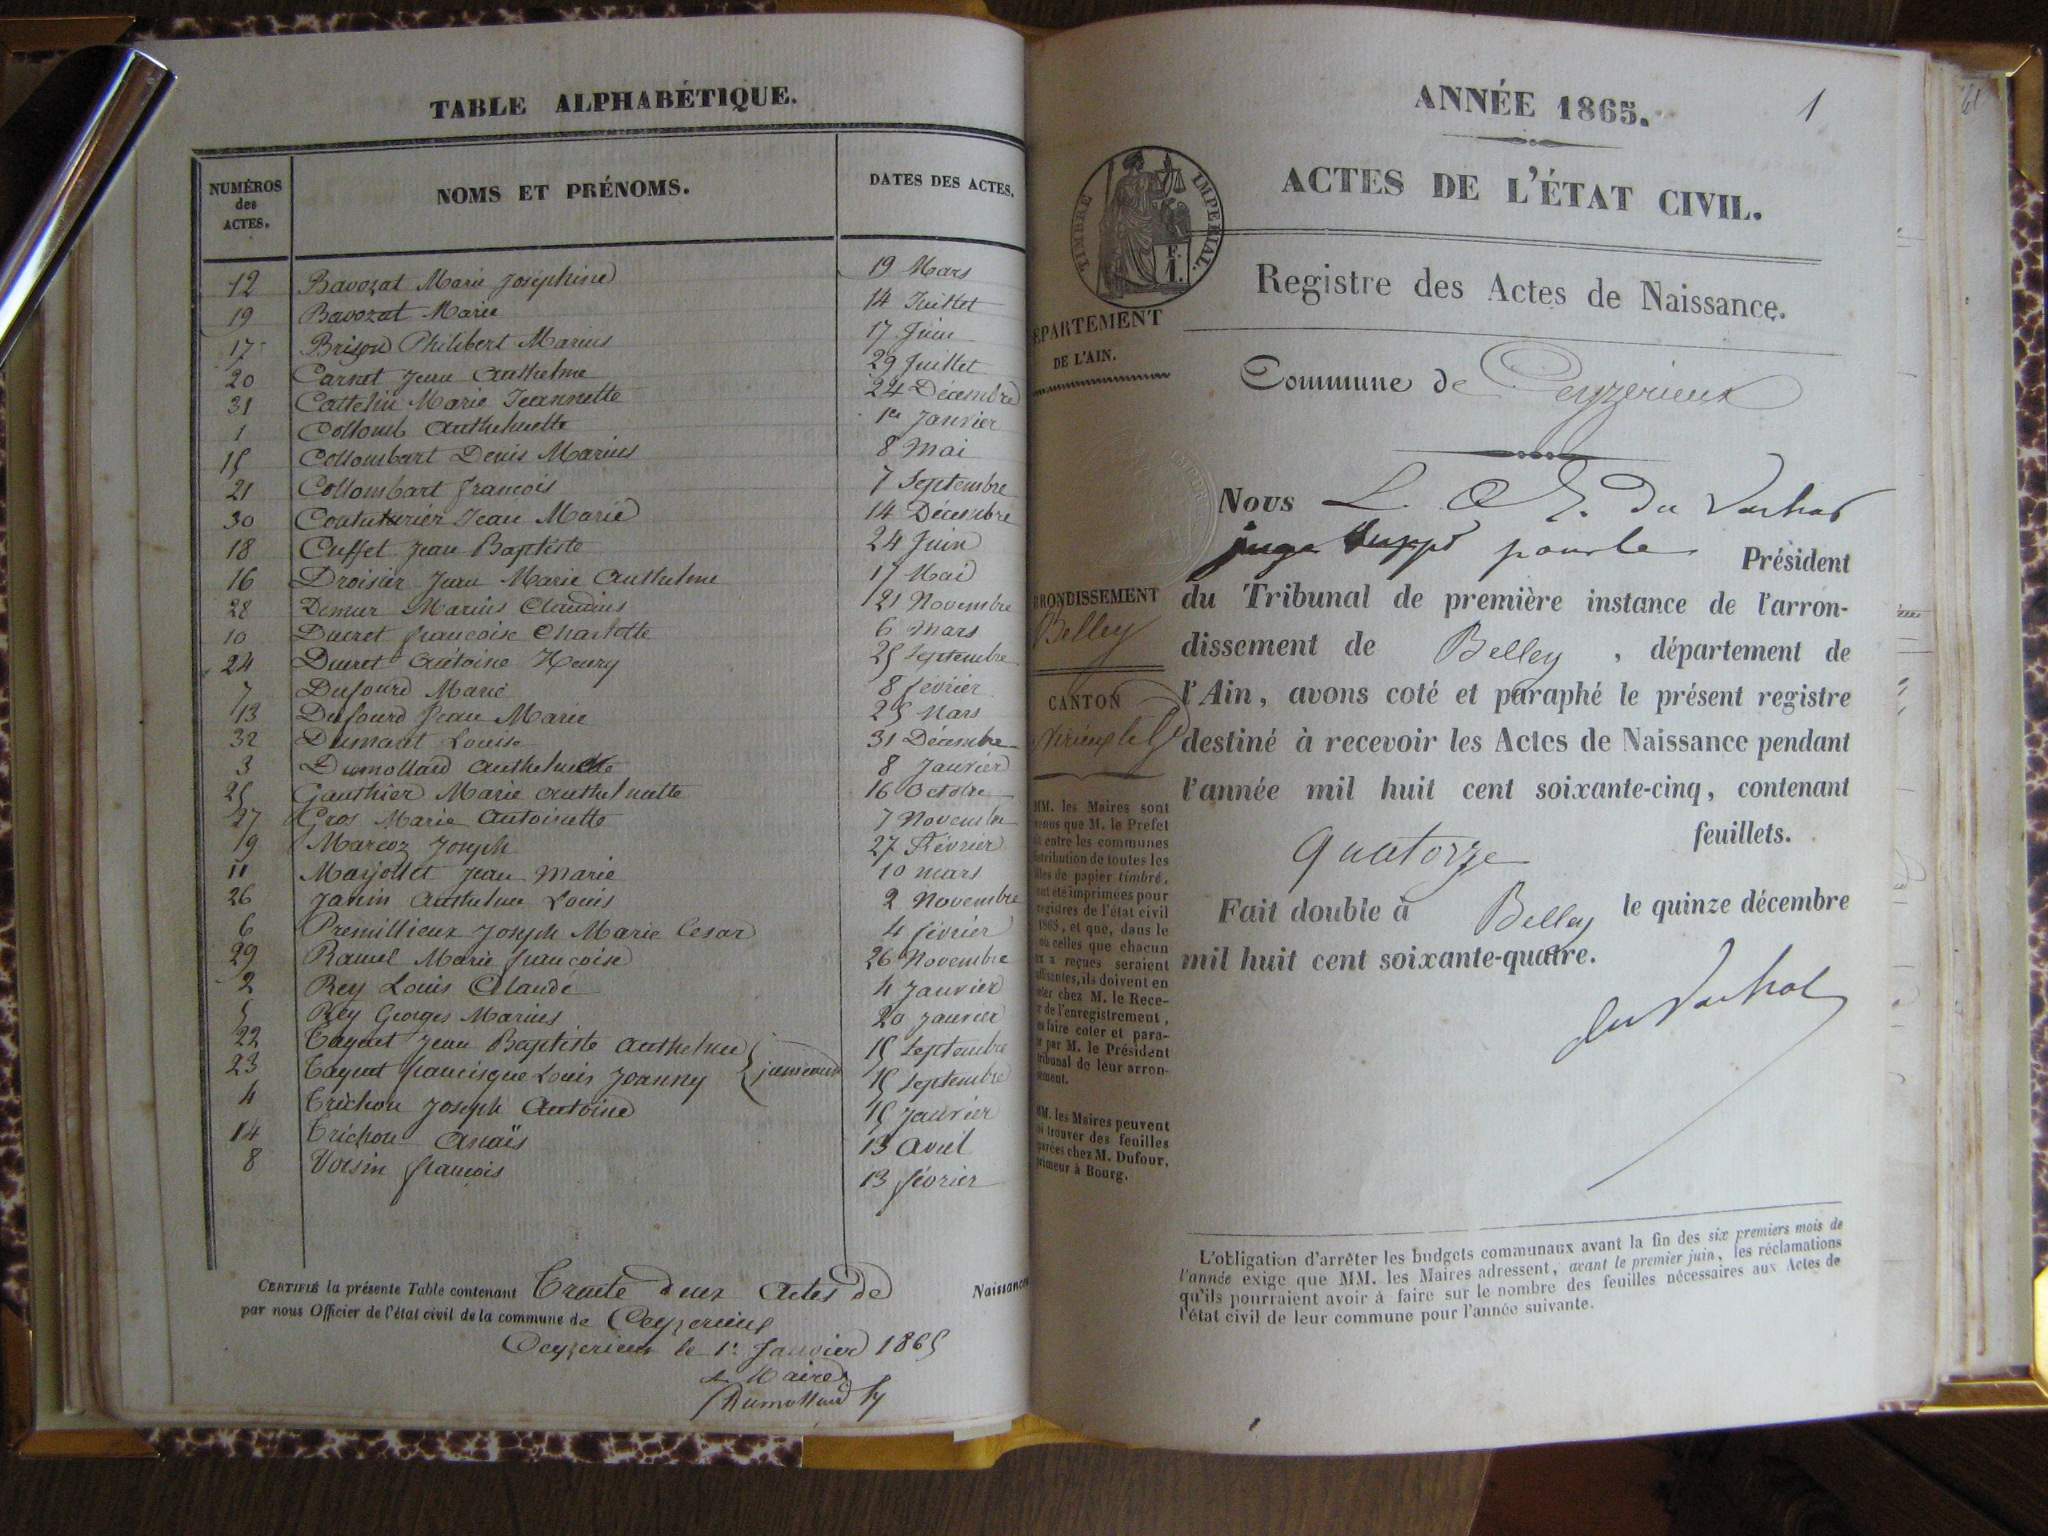 TABLE ALPHABÉTIQUE.
NUMÉROS des ACTES. NOMS ET PRÉNOMS. DATES DES ACTES.
12 Bavozat Marie Joséphine 19 Mars
19 Bavozat Marie 14 Juillet
17 Brison Philibert Marius 17 Juin
20 Carnet Jean Anthelme 29 Juillet
31 Cattelin Marie Jeannette 24 Décembre
1 Collomb Anthelmette 1er Janvier
15 Collombart Denis Marius 8 Mai
21 Collombart françois 7 Septembre
30 Jean Marie 14 Décembre
18 Cuffet Jean Baptiste 24 Juin
16 Droisier Jean Marie Anthelme 17 Mai
28 Demur Marius Claudius 21 Novembre
10 Ducret françoise Charlotte 6 Mars
24 Ducret Antoine Henry 25 Septembre
7 Dufourd Marie 8 février
13 Dufourd Jean Marie 25 Mars
32 Dumarest Louise 31 Décembre
3 Dumollard Anthelmette 8 Janvier
25 Gauthier Marie Anthelmette 16 Octobre
27 Gros Marie Antoinette 7 Novembre
19 Marcoz Joseph 27 Février
11 Marjollet Jean Marie 10 mars
26 Janin Anthelme Louis 2 Novembre
6 Premillieux Joseph Marie Cesar 4 février
29 Ramel Marie françoise 26 Novembre
2 Rey Louis Claude 4 Janvier
5 Rey Georges Marius 20 Janvier
22 Jean Baptiste Anthelme 15 Septembre
23 francisque Louis Joanny jumeaux 15 Septembre
4 Trichon Joseph Antoine 15 Janvier
14 Trichon Anaïs 13 Avril
8 Voisin françois 13 février
CERTIFIÉ la présente Table contenant Trente deux Actes de Naissance
par nous Officier de l'état civil de la commune de Ceyzerieux
Ceyzerieux le 1er Janvier 1865
Le Maire
Dumollard
1
ANNÉE 1865.
ACTES DE L'ÉTAT CIVIL.
TIMBRE IMPÉRIAL.
F. 1.
Registre des Actes de Naissance.
DÉPARTEMENT
DE L'AIN.
Commune de Ceyzerieux
Nous L. du Vachat
juge suppt pour le Président
du Tribunal de première instance de l'arron-
dissement de Belley, département de
l'Ain, avons coté et paraphé le présent registre
destiné à recevoir les Actes de Naissance pendant
l'année mil huit cent soixante-cinq, contenant
quatorze feuillets.
Fait double à Belley le quinze décembre
mil huit cent soixante-quatre.
du Vachat
ARRONDISSEMENT
Belley
CANTON
Virieux le Gd
MM. les Maires sont
que M. le Préfet
entre les communes
distribution de toutes les
de papier timbré,
ont été imprimées pour
registres de l'état civil
1865, et que, dans le
où celles que chacun
a reçues seraient
ils doivent en
chez M. le Rece-
de l'enregistrement,
faire coter et para-
par M. le Président
tribunal de leur arron-
dissement.
MM. les Maires peuvent
trouver des feuilles
chez M. Dufour,
imprimeur à Bourg.
L'obligation d'arrêter les budgets communaux avant la fin des six premiers mois de
l'année exige que MM. les Maires adressent, avant le premier juin, les réclamations
qu'ils pourraient avoir à faire sur le nombre des feuilles nécessaires aux Actes de
l'état civil de leur commune pour l'année suivante.